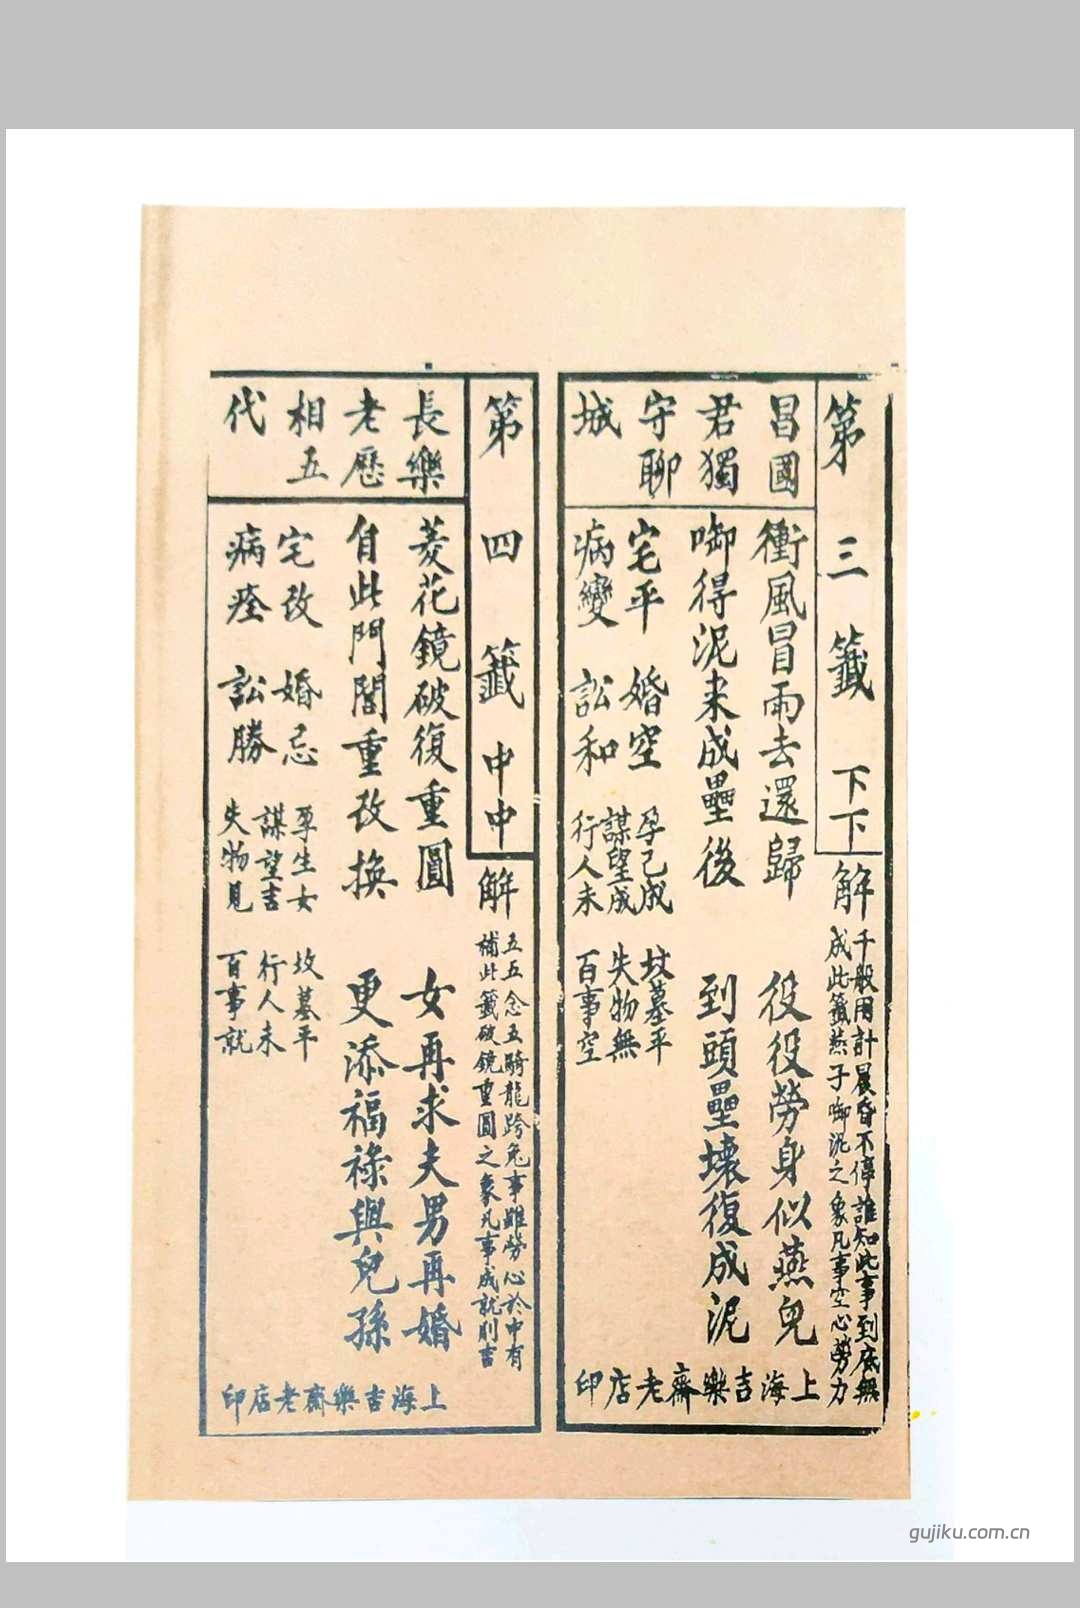 第三籤 下下
解
千般用計晨昏不停誰知此事到底無
成此籤燕子啣泥之象凡事空心勞力
昌國
君獨
守聊
城
衝風冒雨去還歸 役役勞身似燕兒
啣得泥来成壘後 到頭壘壞復成泥
宅平 婚空 孕己成 坟墓平
謀望成 失物無
病變 訟和 行人未 百事空
上海吉樂齋老店印
第四籤 中中
解
五五念五騎龍跨兔事雖勞心於中有
補此籤破鏡重圓之象凡事成就則吉
長樂
老歷
相五
代
菱花鏡破復重圓 女再求夫男再婚
自此門閭重改換 更添福祿與兒孫
宅改 婚忌 孕生女 坟墓平
謀望吉 行人未
病痊 訟勝 失物見 百事就
上海吉樂齋老店印
gujiku.com.cn